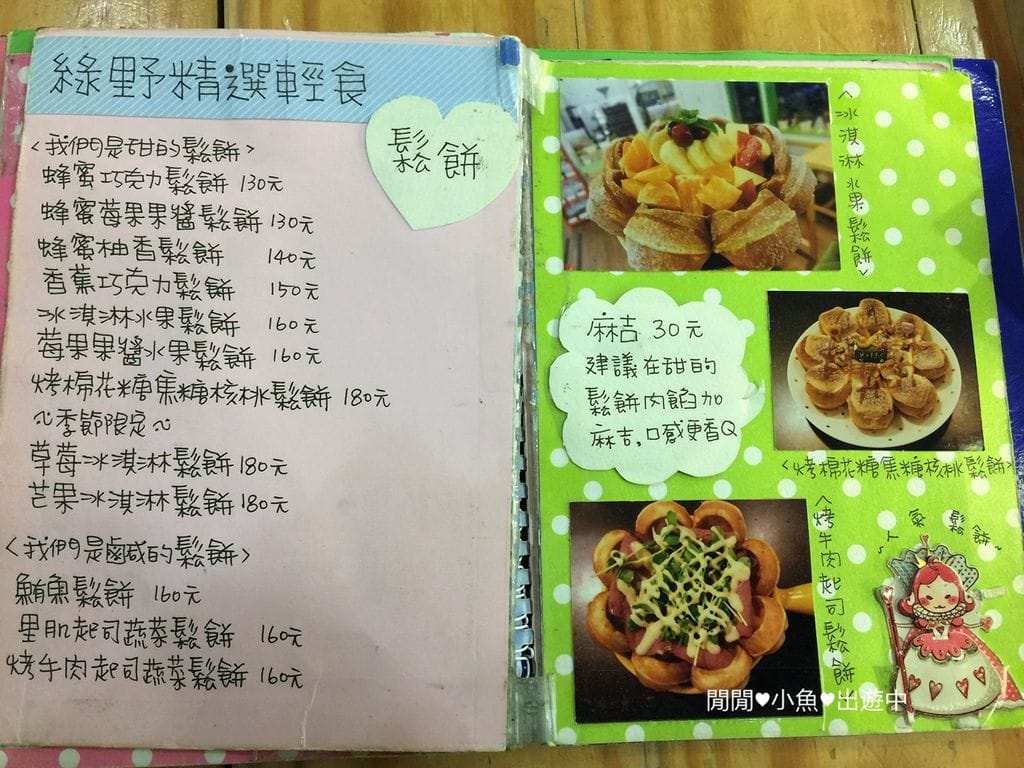 綠野精選輕食
鬆餅
<我們是甜的鬆餅>
蜂蜜巧克力鬆餅 130元
蜂蜜莓果果醬鬆餅 130元
蜂蜜柚香鬆餅 140元
香蕉巧克力鬆餅 150元
冰淇淋水果鬆餅 160元
莓果果醬水果鬆餅 160元
烤棉花糖焦糖核桃鬆餅 180元
~季節限定~
草莓冰淇淋鬆餅 180元
芒果冰淇淋鬆餅 180元
<我們是鹹的鬆餅>
鮪魚鬆餅 160元
里肌起司蔬菜鬆餅 160元
烤牛肉起司蔬菜鬆餅 160元
<冰淇淋水果鬆餅>
麻吉 30元
建議在甜的
鬆餅內餡加
麻吉,口感更香Q
<烤棉花糖焦糖核桃鬆餅>
<烤牛肉起司鬆餅
~人氣鬆餅~
閒閒♥小魚♥出遊中